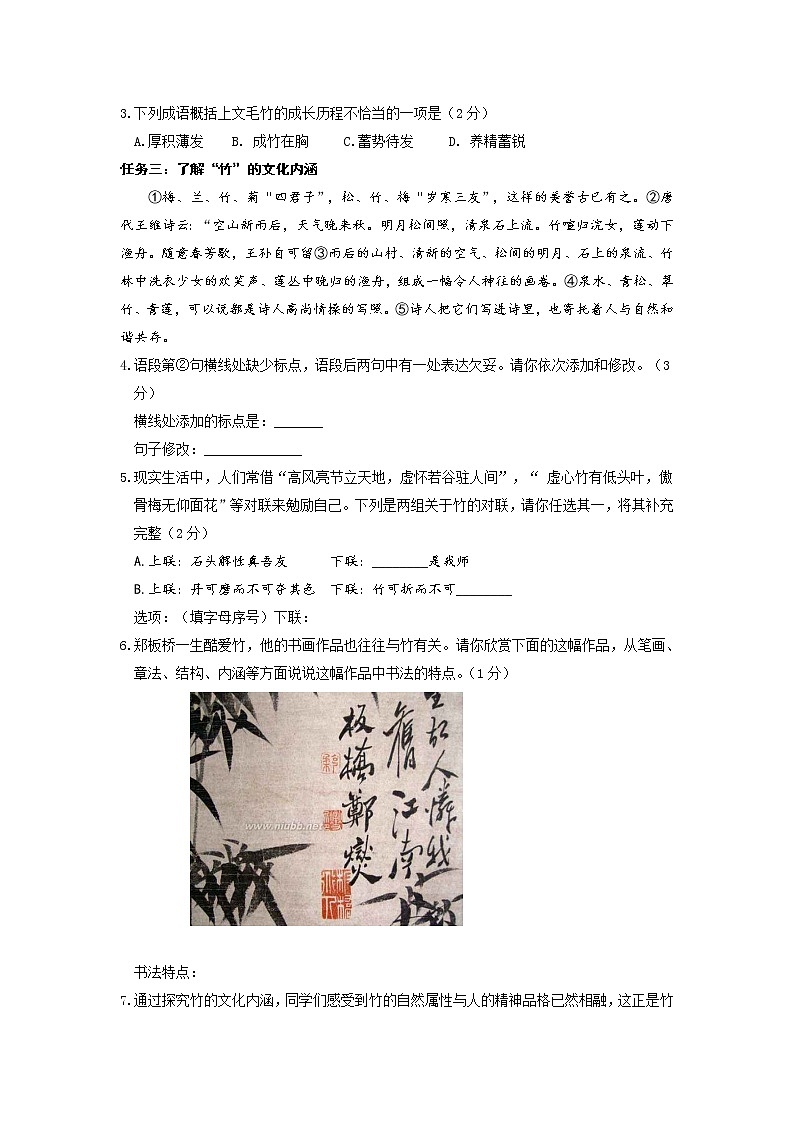 3.下列成语概括上文毛竹的成长历程不恰当的一项是(2分)
A.厚积薄发 B. 成竹在胸 C.蓄势待发 D. 养精蓄锐
任务三：了解“竹”的文化内涵
①梅、兰、竹、菊“四君子”，松、竹、梅“岁寒三友”，这样的美誉古已有之。②唐
代王维诗云：“空山新雨后，天气晚来秋。明月松间照，清泉石上流。竹喧归浣女，莲动下
渔舟。随意春芳歇，王孙自可留③雨后的山村、清新的空气、松间的明月、石上的泉流、竹
林中洗衣少女的欢笑声、莲丛中晚归的渔舟，组成一幅令人神往的画卷。④泉水、青松、翠
竹、青莲，可以说都是诗人高尚情操的写照。⑤诗人把它们写进诗里，也寄托着人与自然和
谐共存。
4.语段第②句横线处缺少标点，语段后两句中有一处表达欠妥。请你依次添加和修改。(3
分)
横线处添加的标点是:_______
句子修改:______________
5.现实生活中，人们常借“高风亮节立天地，虚怀若谷驻人间”，“ 虚心竹有低头叶，傲
骨梅无仰面花”等对联来勉励自己。下列是两组关于竹的对联，请你任选其一，将其补充
完整(2分)
A.上联：石头解性真吾友 下联：________是我师
B.上联：丹可磨而不可夺其色 下联：竹可折而不可________
选项:(填字母序号)下联:
6.郑板桥一生酷爱竹，他的书画作品也往往与竹有关。请你欣赏下面的这幅作品，从笔画、
章法、结构、内涵等方面说说这幅作品中书法的特点。(1分)
人憐我
舊江南
板橋鄭燮
www.niubb.net
书法特点:
7.通过探究竹的文化内涵，同学们感受到竹的自然属性与人的精神品格已然相融，这正是竹